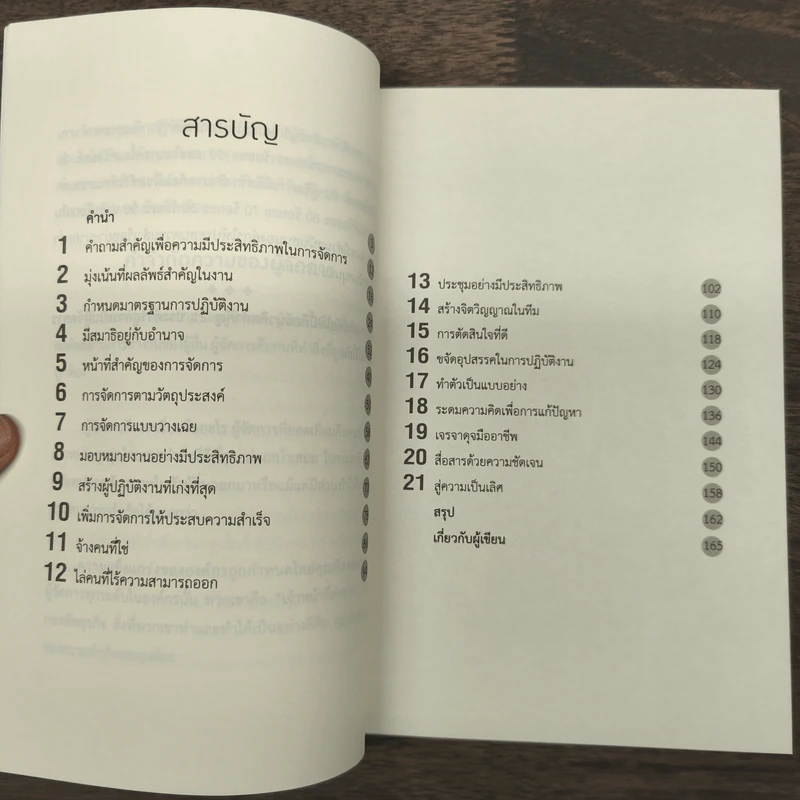 สารบัญ
คำนำ
1 คำถามสำคัญเพื่อความมีประสิทธิภาพในการจัดการ
2 มุ่งเน้นที่ผลลัพธ์สำคัญในงาน
3 กำหนดมาตรฐานการปฏิบัติงาน
4 มีสมาธิอยู่กับอำนาจ
5 หน้าที่สำคัญของการจัดการ
6 การจัดการตามวัตถุประสงค์
7 การจัดการแบบวางเฉย
8 มอบหมายงานอย่างมีประสิทธิภาพ
9 สร้างผู้ปฏิบัติงานที่เก่งที่สุด
10 เพิ่มการจัดการให้ประสบความสำเร็จ
11 จ้างคนที่ใช่
12 ไล่คนที่ไร้ความสามารถออก
13 ประชุมอย่างมีประสิทธิภาพ 102
14 สร้างจิตวิญญาณในทีม 110
15 การตัดสินใจที่ดี 118
16 ขจัดอุปสรรคในการปฏิบัติงาน 124
17 ทำตัวเป็นแบบอย่าง 130
18 ระดมความคิดเพื่อการแก้ปัญหา 136
19 เจรจาดุจมืออาชีพ 144
20 สื่อสารด้วยความชัดเจน 150
21 สู่ความเป็นเลิศ 158
สรุป 162
เกี่ยวกับผู้เขียน 165